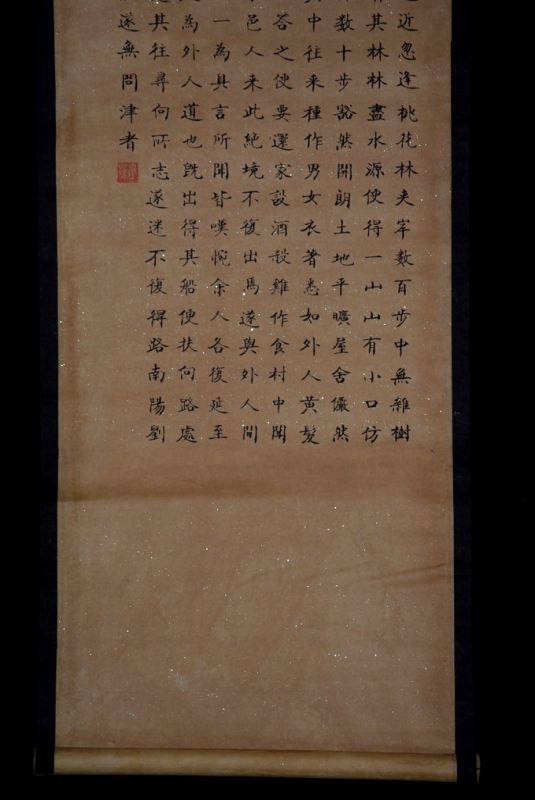 近忽逢桃花林夹岸数百步中無雜樹
其林林盡水源便得一山山有小口仿
数十步豁然開朗土地平曠屋舍儼然
中往来種作男女衣著悉如外人黄髮
答之便要還家設酒殺雞作食村中聞
邑人来此絶境不復出焉遂與外人間
一為具言所聞皆嘆惋余人各復延至
為外人道也既出得其船便扶向路處
其往尋向所志遂迷不復得路南陽劉
遂無問津者